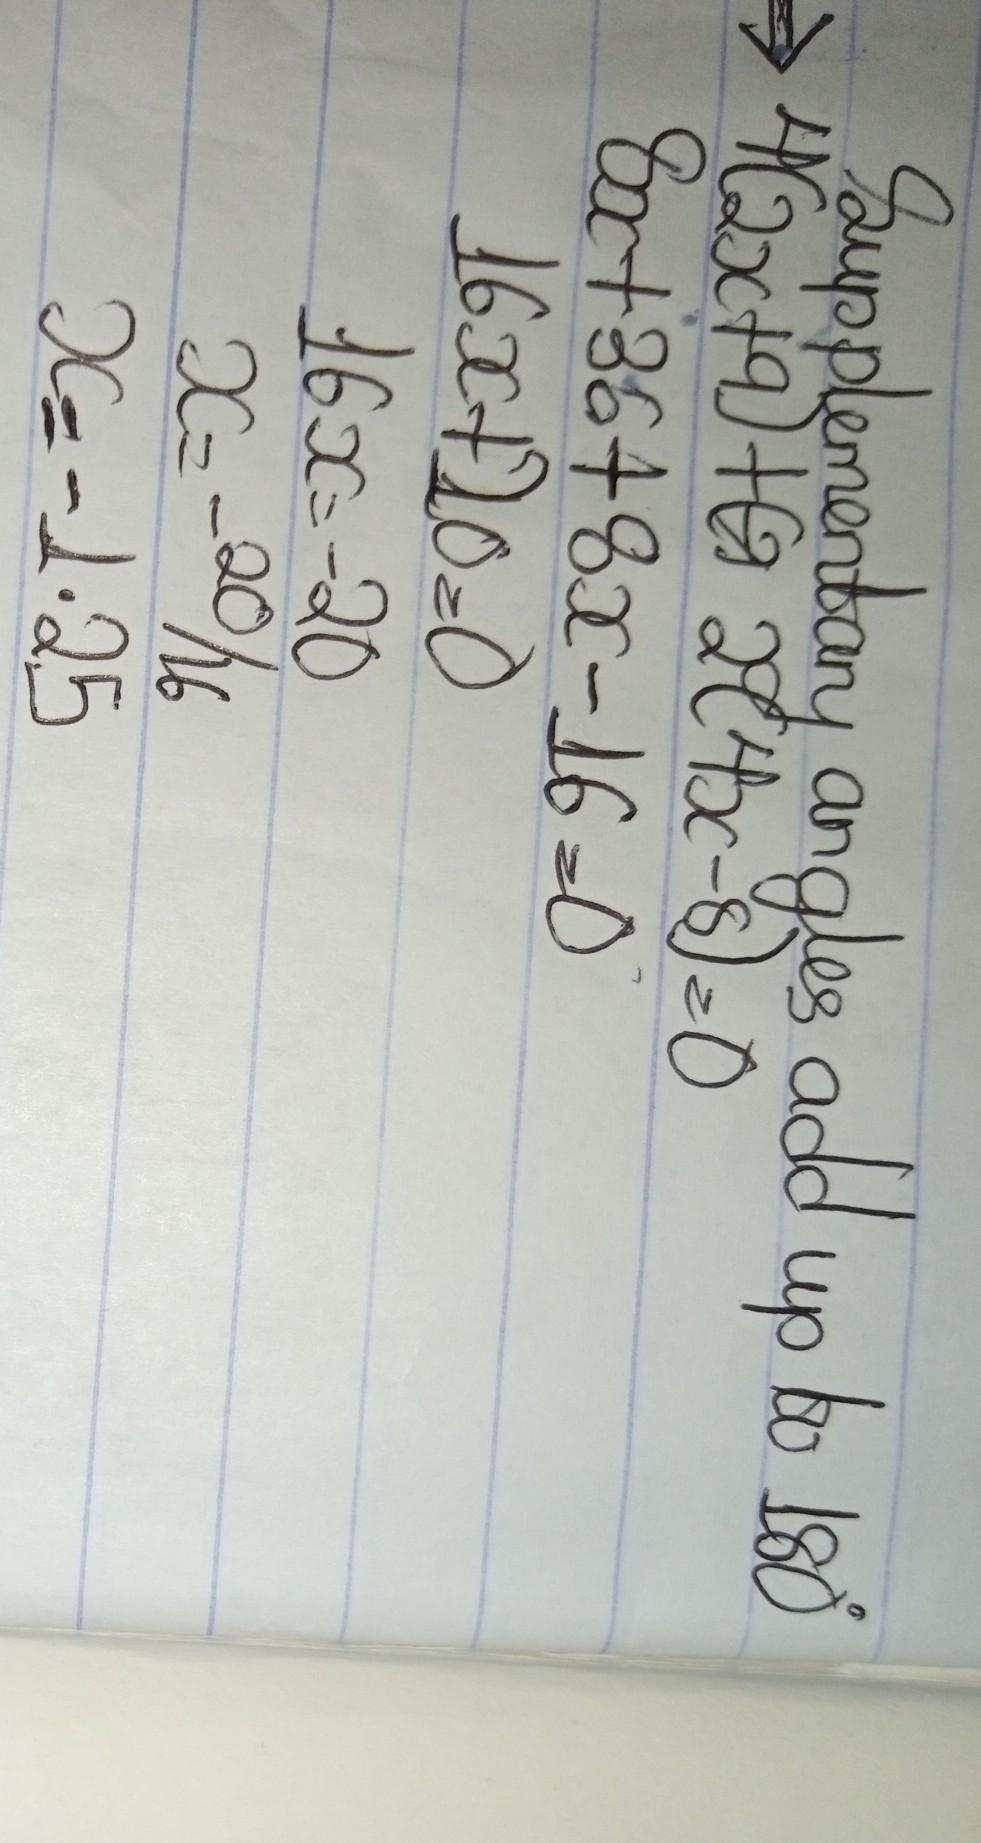 Supplementary angles add up to 180°
→ 4(2x+9)+ 2(4x-8)=0
8x+36+8x-16=0
16x+20=0
16x=-20
x= -20/16
x= -1.25